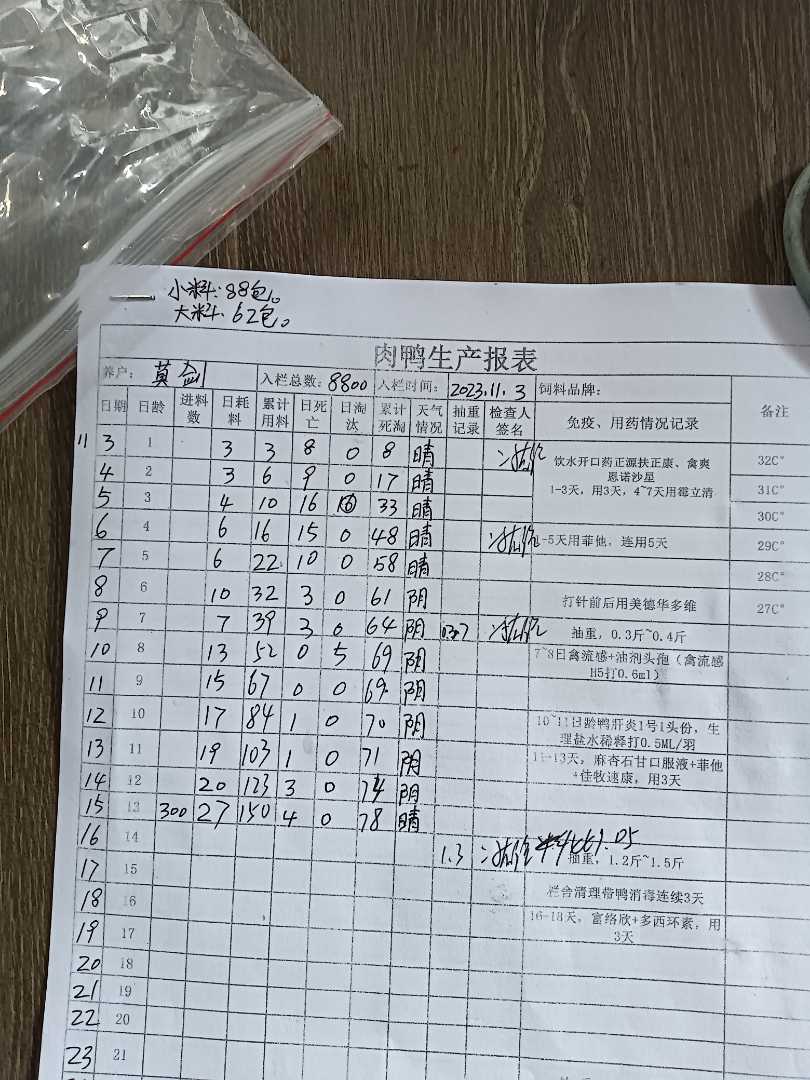 小料:88包。
大料:62包。
肉鸭生产报表
养户: 莫剑 入栏总数: 8800 入栏时间: 2023.11.3 饲料品牌:
日期 日龄 进料数 日耗料 累计用料 日死亡 日淘汰 累计死淘 天气情况 抽重记录 检查人签名 免疫、用药情况记录 备注
11 3 1 3 3 8 0 8 晴 饮水开口药正源扶正康、禽爽 32C°
恩诺沙星
4 2 3 6 9 0 17 晴 1-3天,用3天,4~7天用霉立清 31C°
5 3 4 10 16 0 33 晴 30C°
6 4 6 16 15 0 48 晴 -5天用菲他,连用5天 29C°
7 5 6 22 10 0 58 晴 28C°
8 6 10 32 3 0 61 阴 打针前后用美德华多维 27C°
9 7 7 39 3 0 64 阴 抽重,0.3斤~0.4斤
10 8 13 52 0 5 69 阴 7~8日禽流感+油剂头孢(禽流感
H5打0.6ml)
11 9 15 67 0 0 69 阴
12 10 17 84 1 0 70 阴 10~11日龄鸭肝炎1号1头份,生
理盐水稀释打0.5ML/羽
13 11 19 103 1 0 71 阴 11-13天,麻杏石甘口服液+菲他
+佳牧速康,用3天
14 12 20 123 3 0 74 阴
15 13 300 27 150 4 0 78 晴
16 14 1.3 抽重,1.2斤~1.5斤
17 15
18 16 栏舍清理带鸭消毒连续3天
19 17 16-18天,富络欣+多西环素,用
3天
20 18
21 19
22 20
23 21